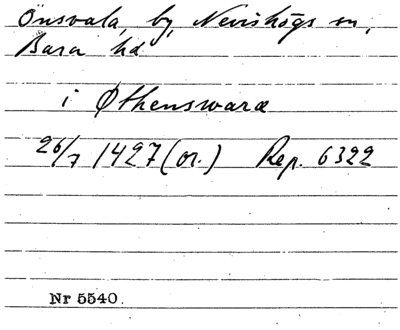 Önsvala, by, Nevishögs sn,
Bara hd
i Øthenswaræ
26/7 1427 (or.) Rep. 6322
Nr 5540.